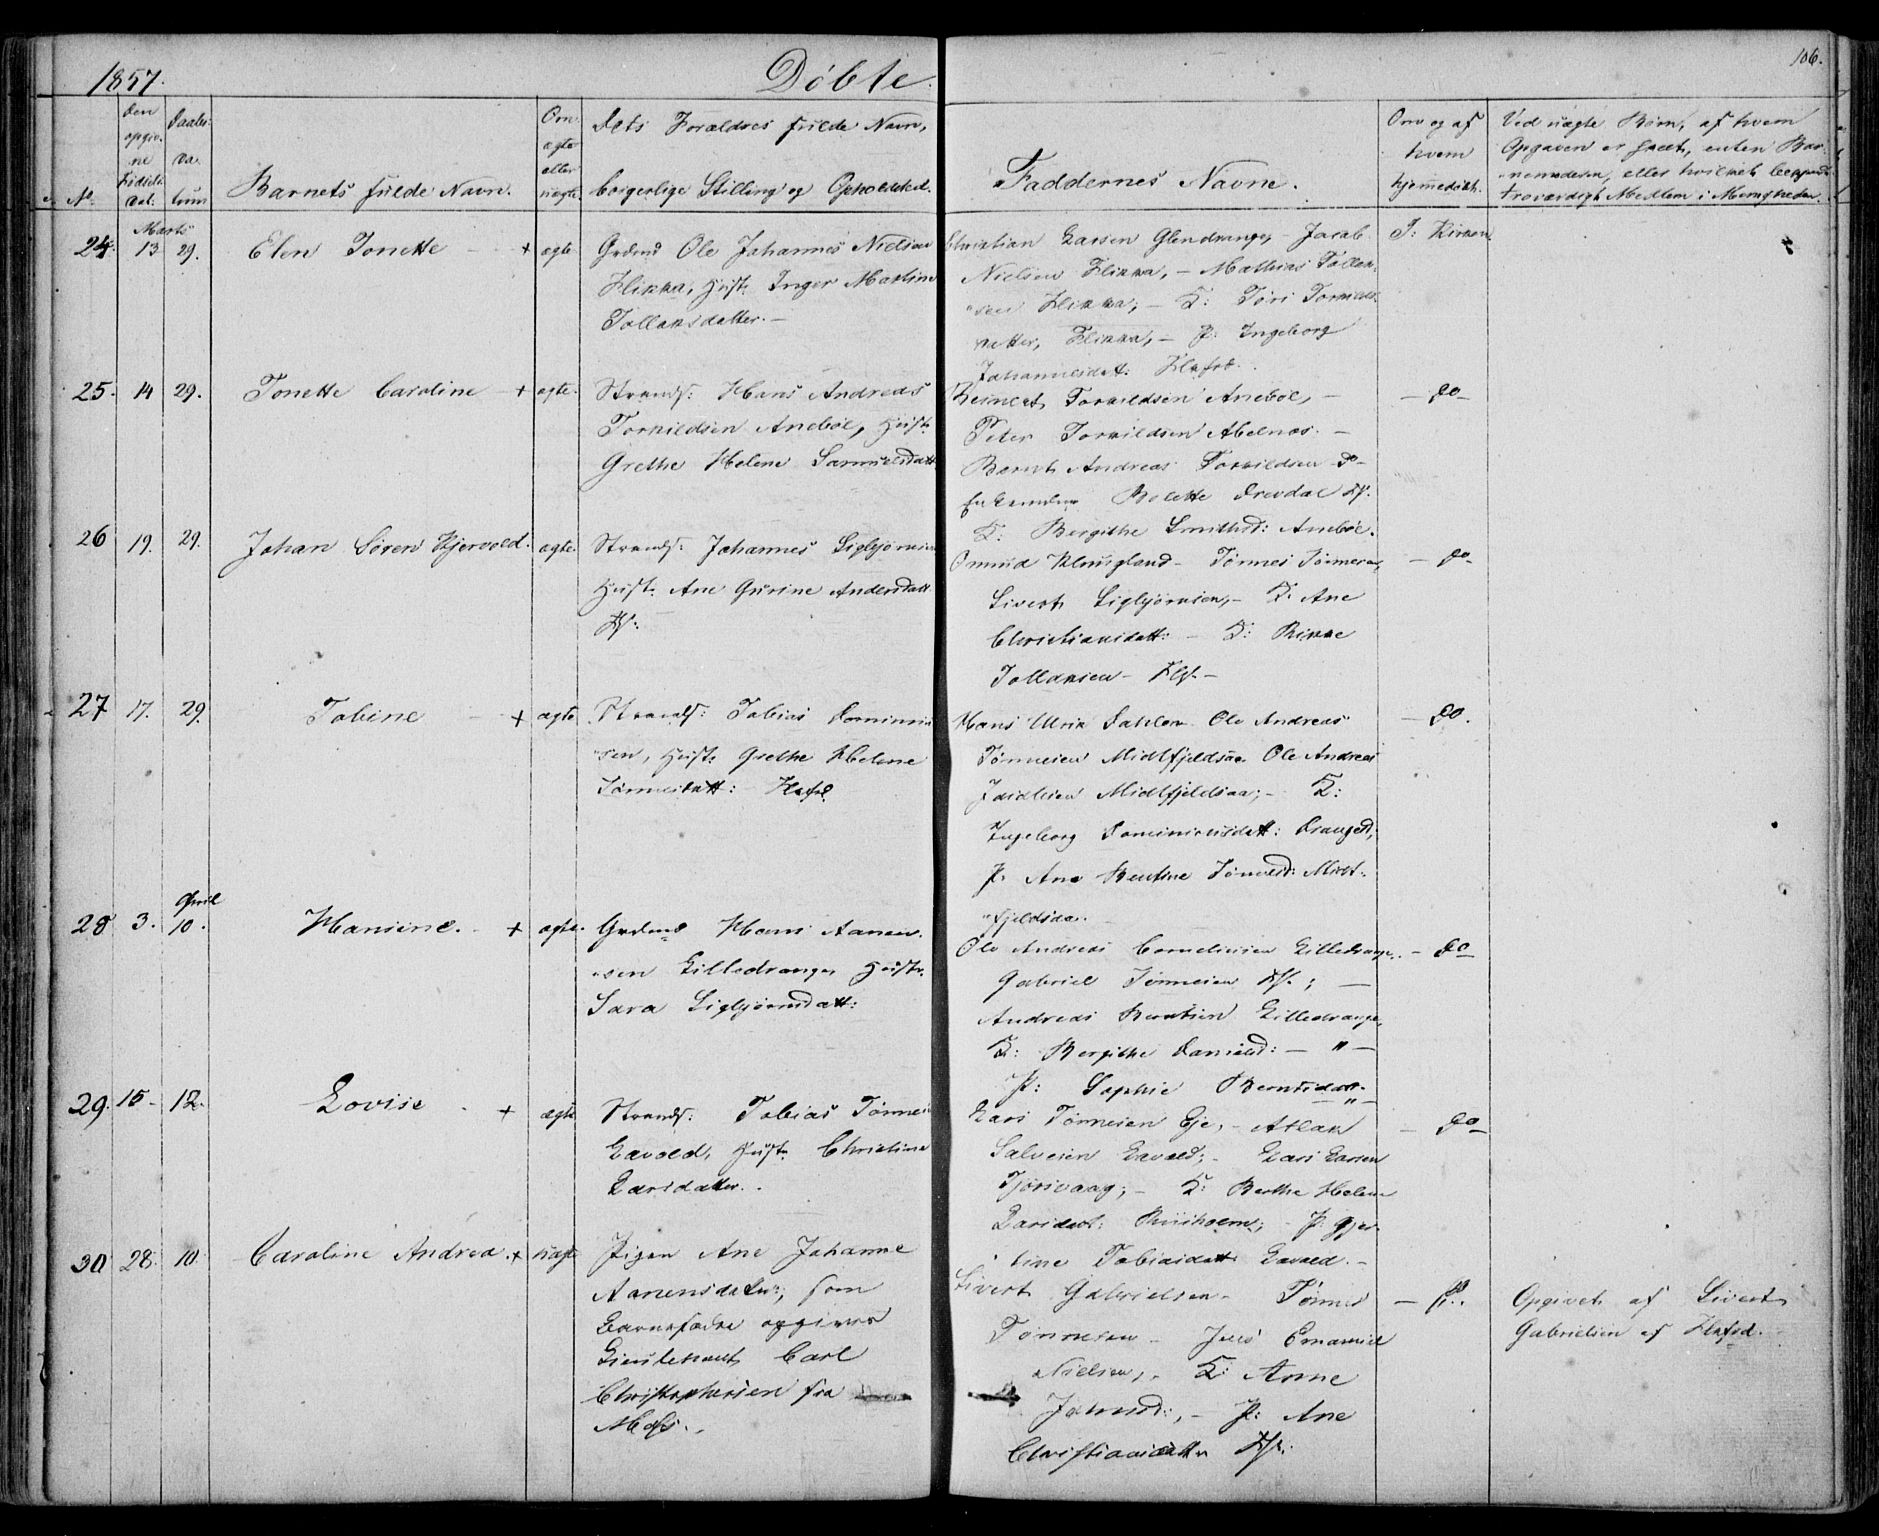 1857.
Døbte.
106.
No.
Den opgivne Fødsels-
Daabs-Datum
Barnets fulde Navn.
Om ægte eller uægte
Dets Forældres fulde Navn,
borgerlige Stilling og Opholdsted.
Faddernes Navne.
Om og af hvem hjemmedøbt.
Ved uægte Børn, af hvem
Opgaven er skeet, enten Bar-
troværdigt Medlem i Menigheden.
24. Marts 13 29. Elen Tonette + ægte
Grdmd Ole Johannes Nielsen
Flikka, Hust: Inger Martine
Tollaksdatter.—
Christian Larsen Glendrange, — Jacob
Nielsen Flikka, — Mathias Tollak-
sen Flikka; — K: Tori Torkilds-
datter, Flikka, — P: Ingeborg
Johannesdat: Flkfrd.
I: Kirken
25. 14 29. Tonette Caroline + ægte.
Strands: Hans Andreas
Torkildsen Anebøe, Hust:
Grethe Helene Samuelsdatt
Reinert Torkildsen Anebøe, —
Peter Torkildsen Abelnæs. —
Bernt Andreas Torkildsen Do—
Bolette Drevdal
K: Bergithe Smithsd: Anebøe.
— Do—
26 19. 29. Johan Søren Hjervold. ægte.
Strands: Johannes Sigbjørnsen
Hust: Ane Gurine Andersdatt
Omund Klungland — Tønnes Tønnesen,
Sivert Sigbjørnsen, — K: Ane
Christiansdatt: — K: Rikke
Tollaksen — Flf. —
— Do
27 17. 29. Tobine + ægte
Strands: Tobias Dominicu-
sen, Hust: Grethe Helene
Tønnesdatt: Flkfrd.
Hans Ulrik Dahler Ole Andreas
Tønnesen Midtfjeldsaa Ole Andreas
Midtfjeldsaa; — K:
Ingeborg Dominicusdatt: Dranged;
P: Ane Bentine Tønnesd: Midt-
fjeldsaa.
— Do.
28 3. April 10. Hansine. + ægte.
Grdmd Hans Aanen-
sen Lilledrange, Hust:
Sara Sigbjørnsdatt:
Ole Andreas Corneliusen Lilledrange.
Gabriel Tønnesen Flf.; —
Andreas Berntsen Lilledrange,
K: Bergithe Danield: — " —
P: Sophie Berntsdatt. — " —
— Do
29. 15 — 12. Lovise + ægte
Strands: Tobias Tønnes:
Lavold, Hust: Christine
Larsdatter.
Lars Tønnesen Eje, — Atlak
Salvesen Lavold; — Lars Larsen
Tjørsvaag; — K: Berthe Helene
Larsdat: — P: Gjer-
tine Tobiasdatt Lavold. —
— Do
30 28. 10. Caroline Andrea. + uægte
Pigen Ane Johanne
Aanensdatter, som
Barnefader opgives
Lieutenant Carl
Christophersen fra
Moss.
Sivert Gabrielsen — Tønnes
Tønnesen — Jens Emanuel
Nielsen, — K: Anne
P: Ane
Christiansdatter Flf:
— Do.
Opgivet af Sivert
Gabrielsen af Flkfrd.